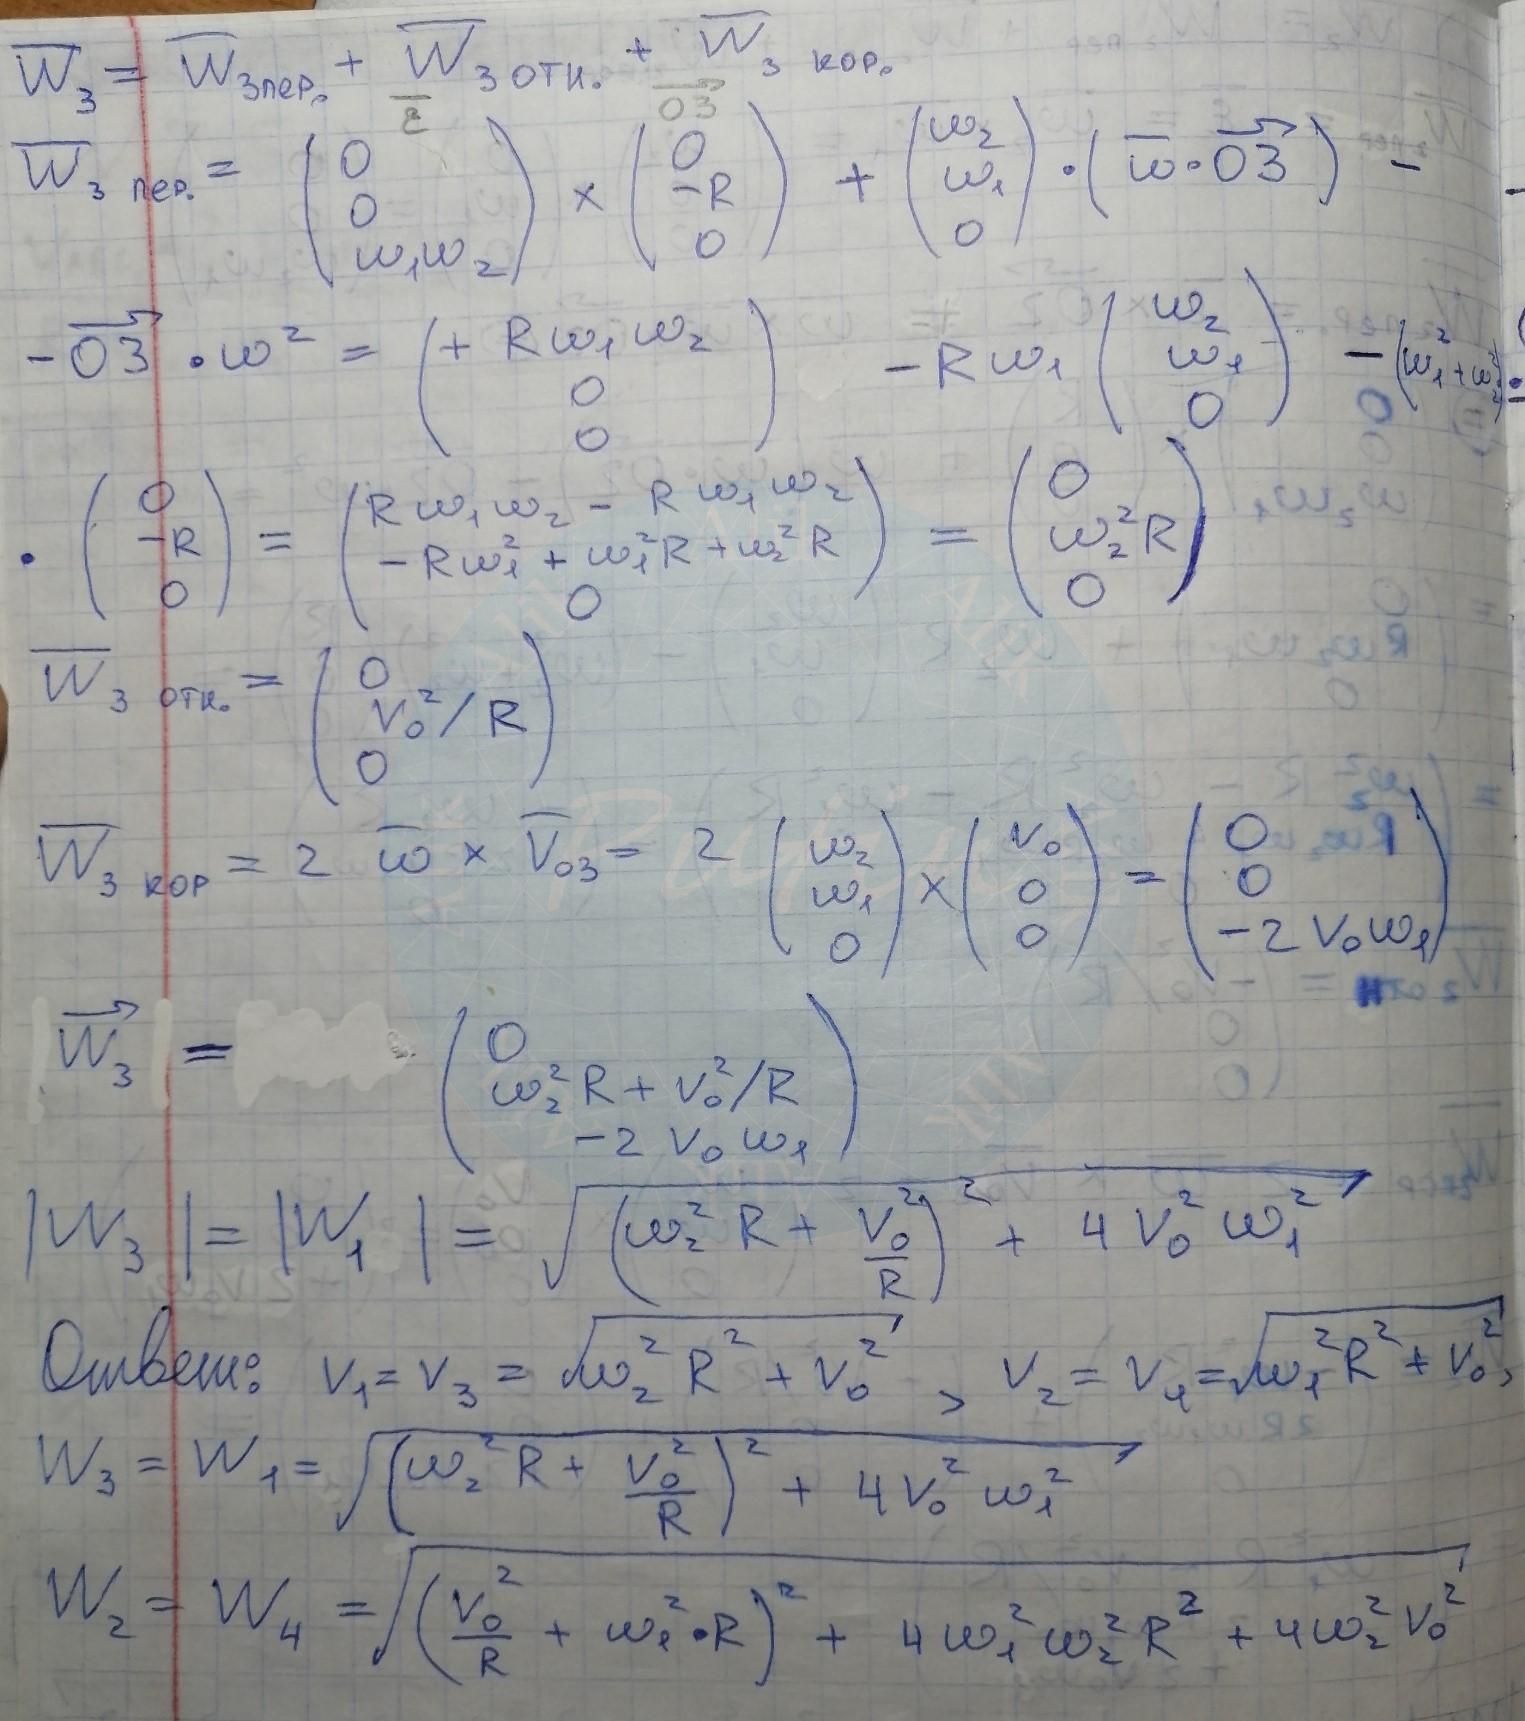 W̅₃ = W̅₃пер. + W̅₃отн. + W̅₃ кор.
ε̅ O3⃗
W̅₃ пер. = (0 0 ω₁ω₂) × (0 -R 0) + (ω₂ ω₁ 0) · (ω̅ · O3⃗) -
- O3⃗ · ω² = (+ Rω₁ω₂ 0 0) - Rω₁ (ω₂ ω₁ 0) - (ω₁² + ω₂²) ·
· (0 -R 0) = (Rω₁ω₂ - Rω₁ω₂ -Rω₁² + ω₁²R + ω₂²R 0) = (0 ω₂²R 0)
W̅₃ отн. = (0 V₀²/R 0)
W̅₃ кор = 2 ω̅ × V̅₀₃ = 2 (ω₂ ω₁ 0) × (V₀ 0 0) = (0 0 -2V₀ω₁)
W⃗₃ = (0 ω₂²R + V₀²/R -2V₀ω₁)
|W₃| = |W₁| = √((ω₂²R + V₀²/R)² + 4V₀²ω₁²)
Ответ: V₁ = V₃ = √(ω₂²R² + V₀²), V₂ = V₄ = √(ω₁²R² + V₀²),
W₃ = W₁ = √((ω₂²R + V₀²/R)² + 4V₀²ω₁²)
W₂ = W₄ = √((V₀²/R + ω₁²·R)² + 4ω₁²ω₂²R² + 4ω₂²V₀²)